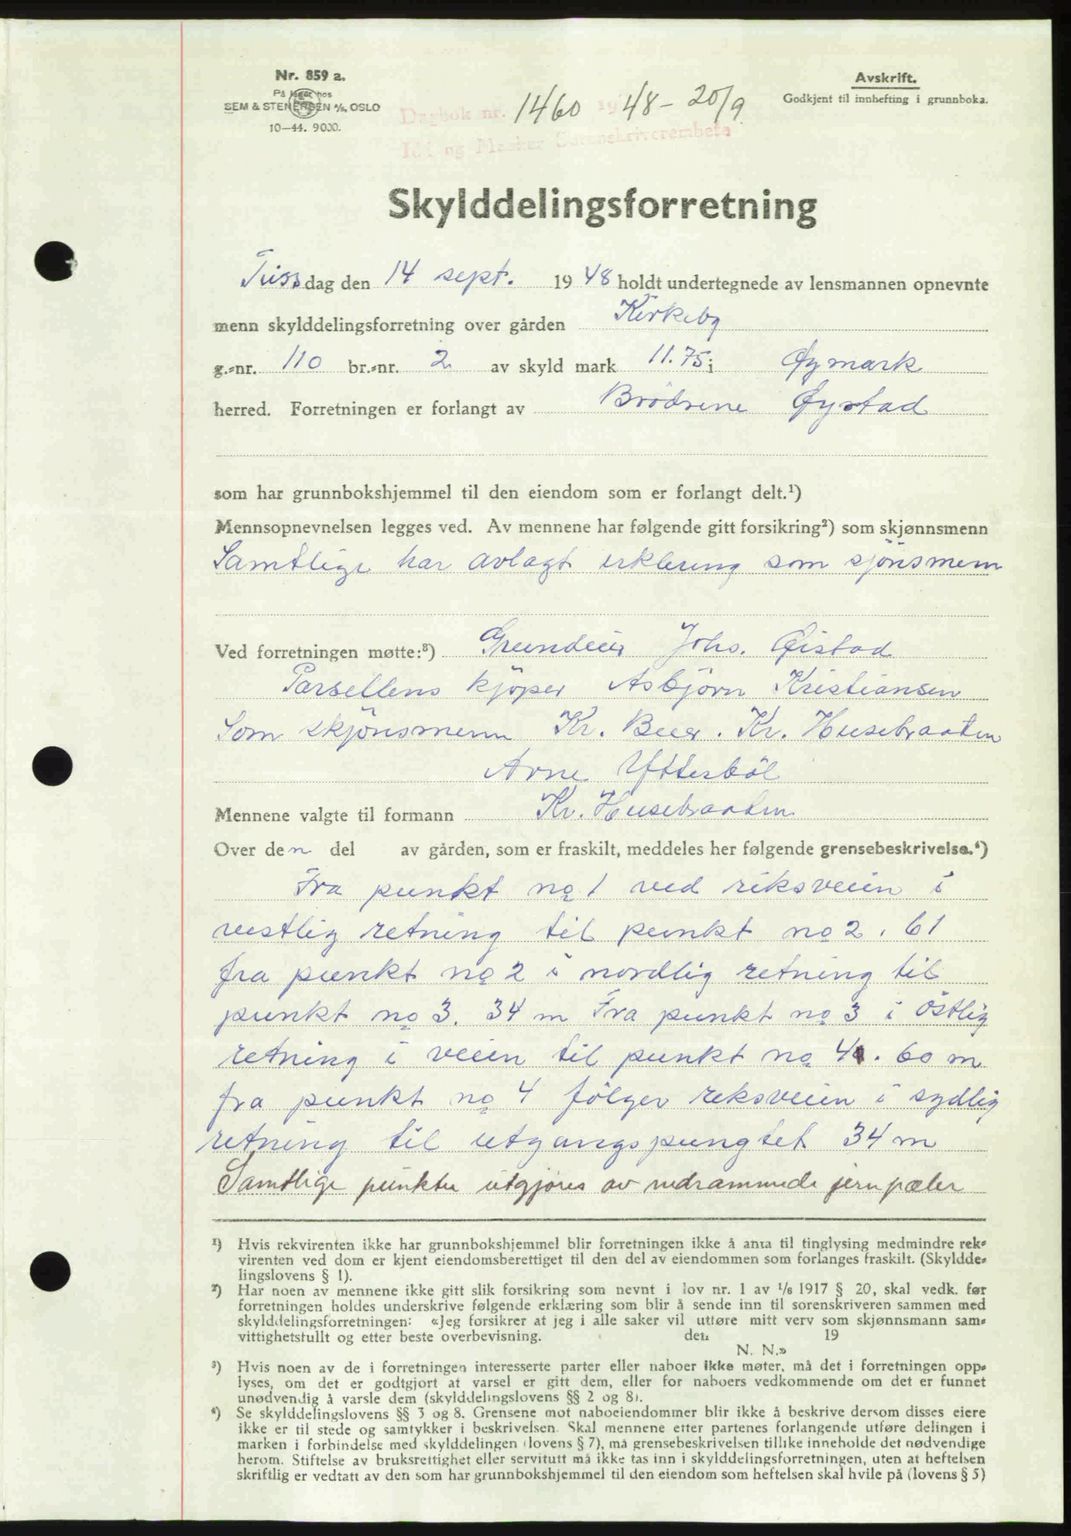 Nr. 859 a.
På lager hos
SEM & STENERSEN A/S, OSLO
10—44. 9000.
Dagbok nr. 1460 1948 - 20/9
Idd og Marker Sorenskriverembete
Avskrift.
Godkjent til innhefting i grunnboka.
Skylddelingsforretning
Tirsdag den 14 sept. 1948 holdt undertegnede av lensmannen opnevnte
menn skylddelingsforretning over gården Kirkeby
g.-nr. 110 br.-nr. 2 av skyld mark 11.75 i Øymark
herred. Forretningen er forlangt av Brödrene Øystad
som har grunnbokshjemmel til den eiendom som er forlangt delt.¹)
Mennsopnevnelsen legges ved. Av mennene har følgende gitt forsikring²) som skjønnsmenn
Samtlige har avlagt erklering som sjönsmenn
Ved forretningen møtte:³) Grundeier Johs. Øistad
Parsellens kjöper Asbjörn Kristiansen
Som skjönsmenn Kr. Beer. Kr. Husebraaten
Arne Ytterböl
Mennene valgte til formann Kr. Husebraaten
Over den del av gården, som er fraskilt, meddeles her følgende grensebeskrivelse.⁴)
Fra punkt no 1 ved riksveien i
vestlig retning til punkt no 2. 61
fra punkt no 2 i nordlig retning til
punkt no 3. 34 m Fra punkt no 3 i östlig
retning i veien til punkt no 4. 60 m
fra punkt no 4 fölger reksveien i sydlig
retning til utgangspungtet 34 m
Samtlige punkter utgjøres av nedrammede jernpæler
¹) Hvis rekvirenten ikke har grunnbokshjemmel blir forretningen ikke å anta til tinglysing medmindre rek-
virenten ved dom er kjent eiendomsberettiget til den del av eiendommen som forlanges fraskilt. (Skyldde-
lingslovens § 1).
²) Har noen av mennene ikke gitt slik forsikring som nevnt i lov nr. 1 av 1/6 1917 § 20, skal vedk. før
forretningen holdes underskrive følgende erklæring som blir å sende inn til sorenskriveren sammen med
skylddelingsforretningen: «Jeg forsikrer at jeg i alle saker vil utføre mitt verv som skjønnsmann sam-
vittighetsfullt og etter beste overbevisning. den 19
N. N.»
³) Hvis noen av de i forretningen interesserte parter eller naboer ikke møter, må det i forretningen opp-
lyses, om det er godtgjort at varsel er gitt dem, eller for naboers vedkommende om det er funnet
unødvendig å varsle dem (skylddelingslovens §§ 2 og 8).
⁴) Se skylddelingslovens §§ 3 og 8. Grensene mot naboeiendommer blir ikke å beskrive dersom disses eiere
ikke er til stede og samtykker i beskrivelsen. Skal mennene etter partenes forlangende utføre delingen i
marken i forbindelse med skylddelingen (lovens § 7), må grensebeskrivelsen tillike inneholde det nødvendige
herom. Stiftelse av bruksrettighet eller servitutt må ikke tas inn i skylddelingsforretningen, uten at heftelsen
skriftlig er vedtatt av den som har grunnbokshjemmel til den eiendom som heftelsen skal hvile på (lovens § 5)